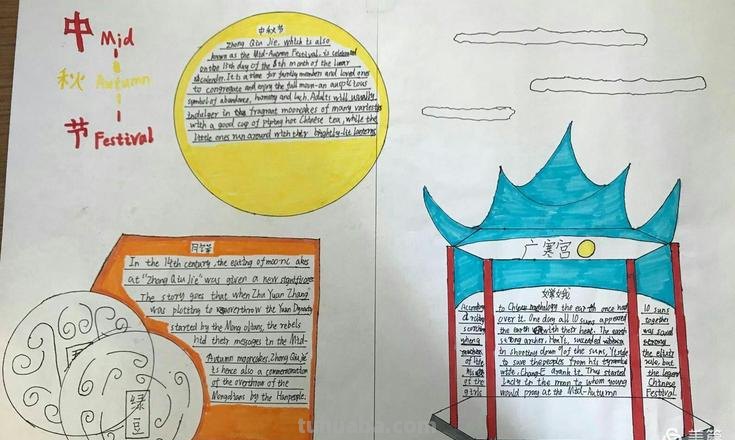 中 Mid
秋 Autumn
节 Festival
中秋节
Zhong Qiu Jie, which is also
known as the Mid-Autumn Festival, is celebrated
on the 15th day of the 8th month of the lunar
calendar. It is a time for family members and loved ones
to congregate and enjoy the full moon-an auspicious
symbol of abundance, harmony and luch. Adults will usually
indulger in the fragrant mooncakes of many varieties
with a good cup of piping hot Chinese tea, while the
little ones run around with their brightly-lit lanterns
In the 14th century, the eating of moonc akes
at "Zhong Qiu Jie" was given a new significance
The story goes that when Zhu Yuan Zhang
was plotting to overthrow the Yuan Dynasty
started by the Mong olians, the rebels
hid their messages in the Mid-
Autumn mooncakes. Zhong Qiu Jie
is hence also a commemoration
of the overthrow of the
Mongolians by the Hanpeople.
绿豆
广寒宫
嫦娥
to Chinese the earth once had 10 suns
over it. One day, all 10 suns appeared together
the earth with their heat. The earth was saved
strong archer, Hou Yi, succeeded
in shooting down 9 of the suns, Yi stole the elixir
to save the people from his rule, but
wife, Chang-E drank it. Thus started the legend
lady in the moon to whom young Chinese
girls would pray at the Mid-Autumn Festival
tunuaba.com
美篇